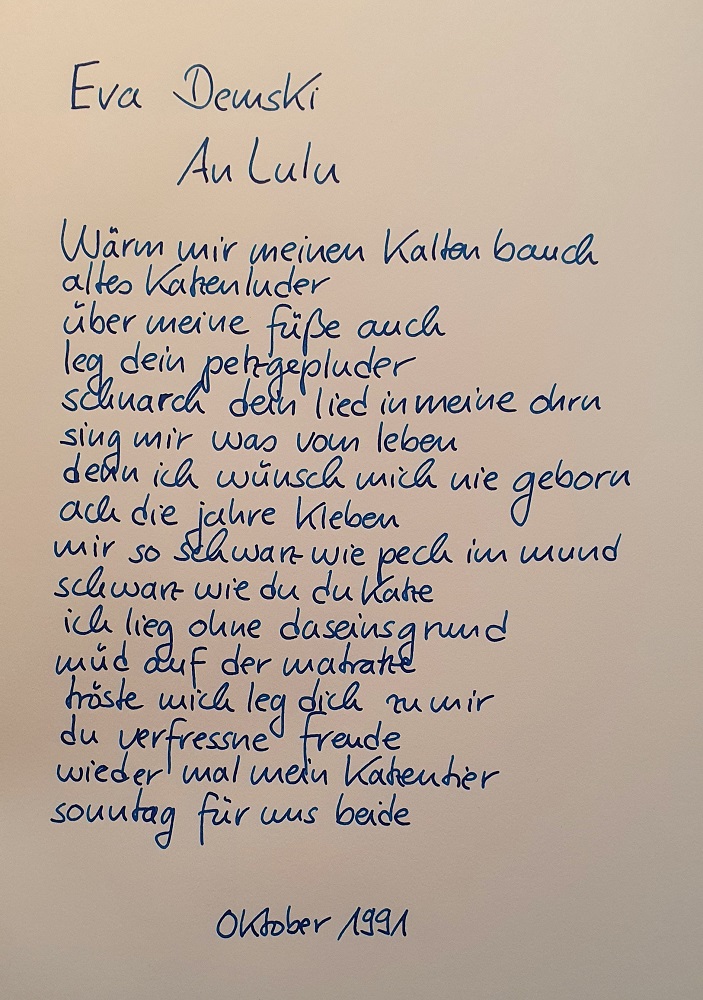 Eva Demski
An Lulu
Wärm mir meinen kalten bauch
altes katzenluder
über meine füße auch
leg dein pelzgepluder
schnarch dein lied in meine ohrn
sing mir was vom leben
denn ich wünsch mich nie geborn
ach die jahre kleben
mir so schwarz wie pech im mund
schwarz wie du du katze
ich lieg ohne daseinsgrund
müd auf der matratze
tröste mich leg dich zu mir
du verfressne freude
wieder mal mein katzentier
sonntag für uns beide
Oktober 1991